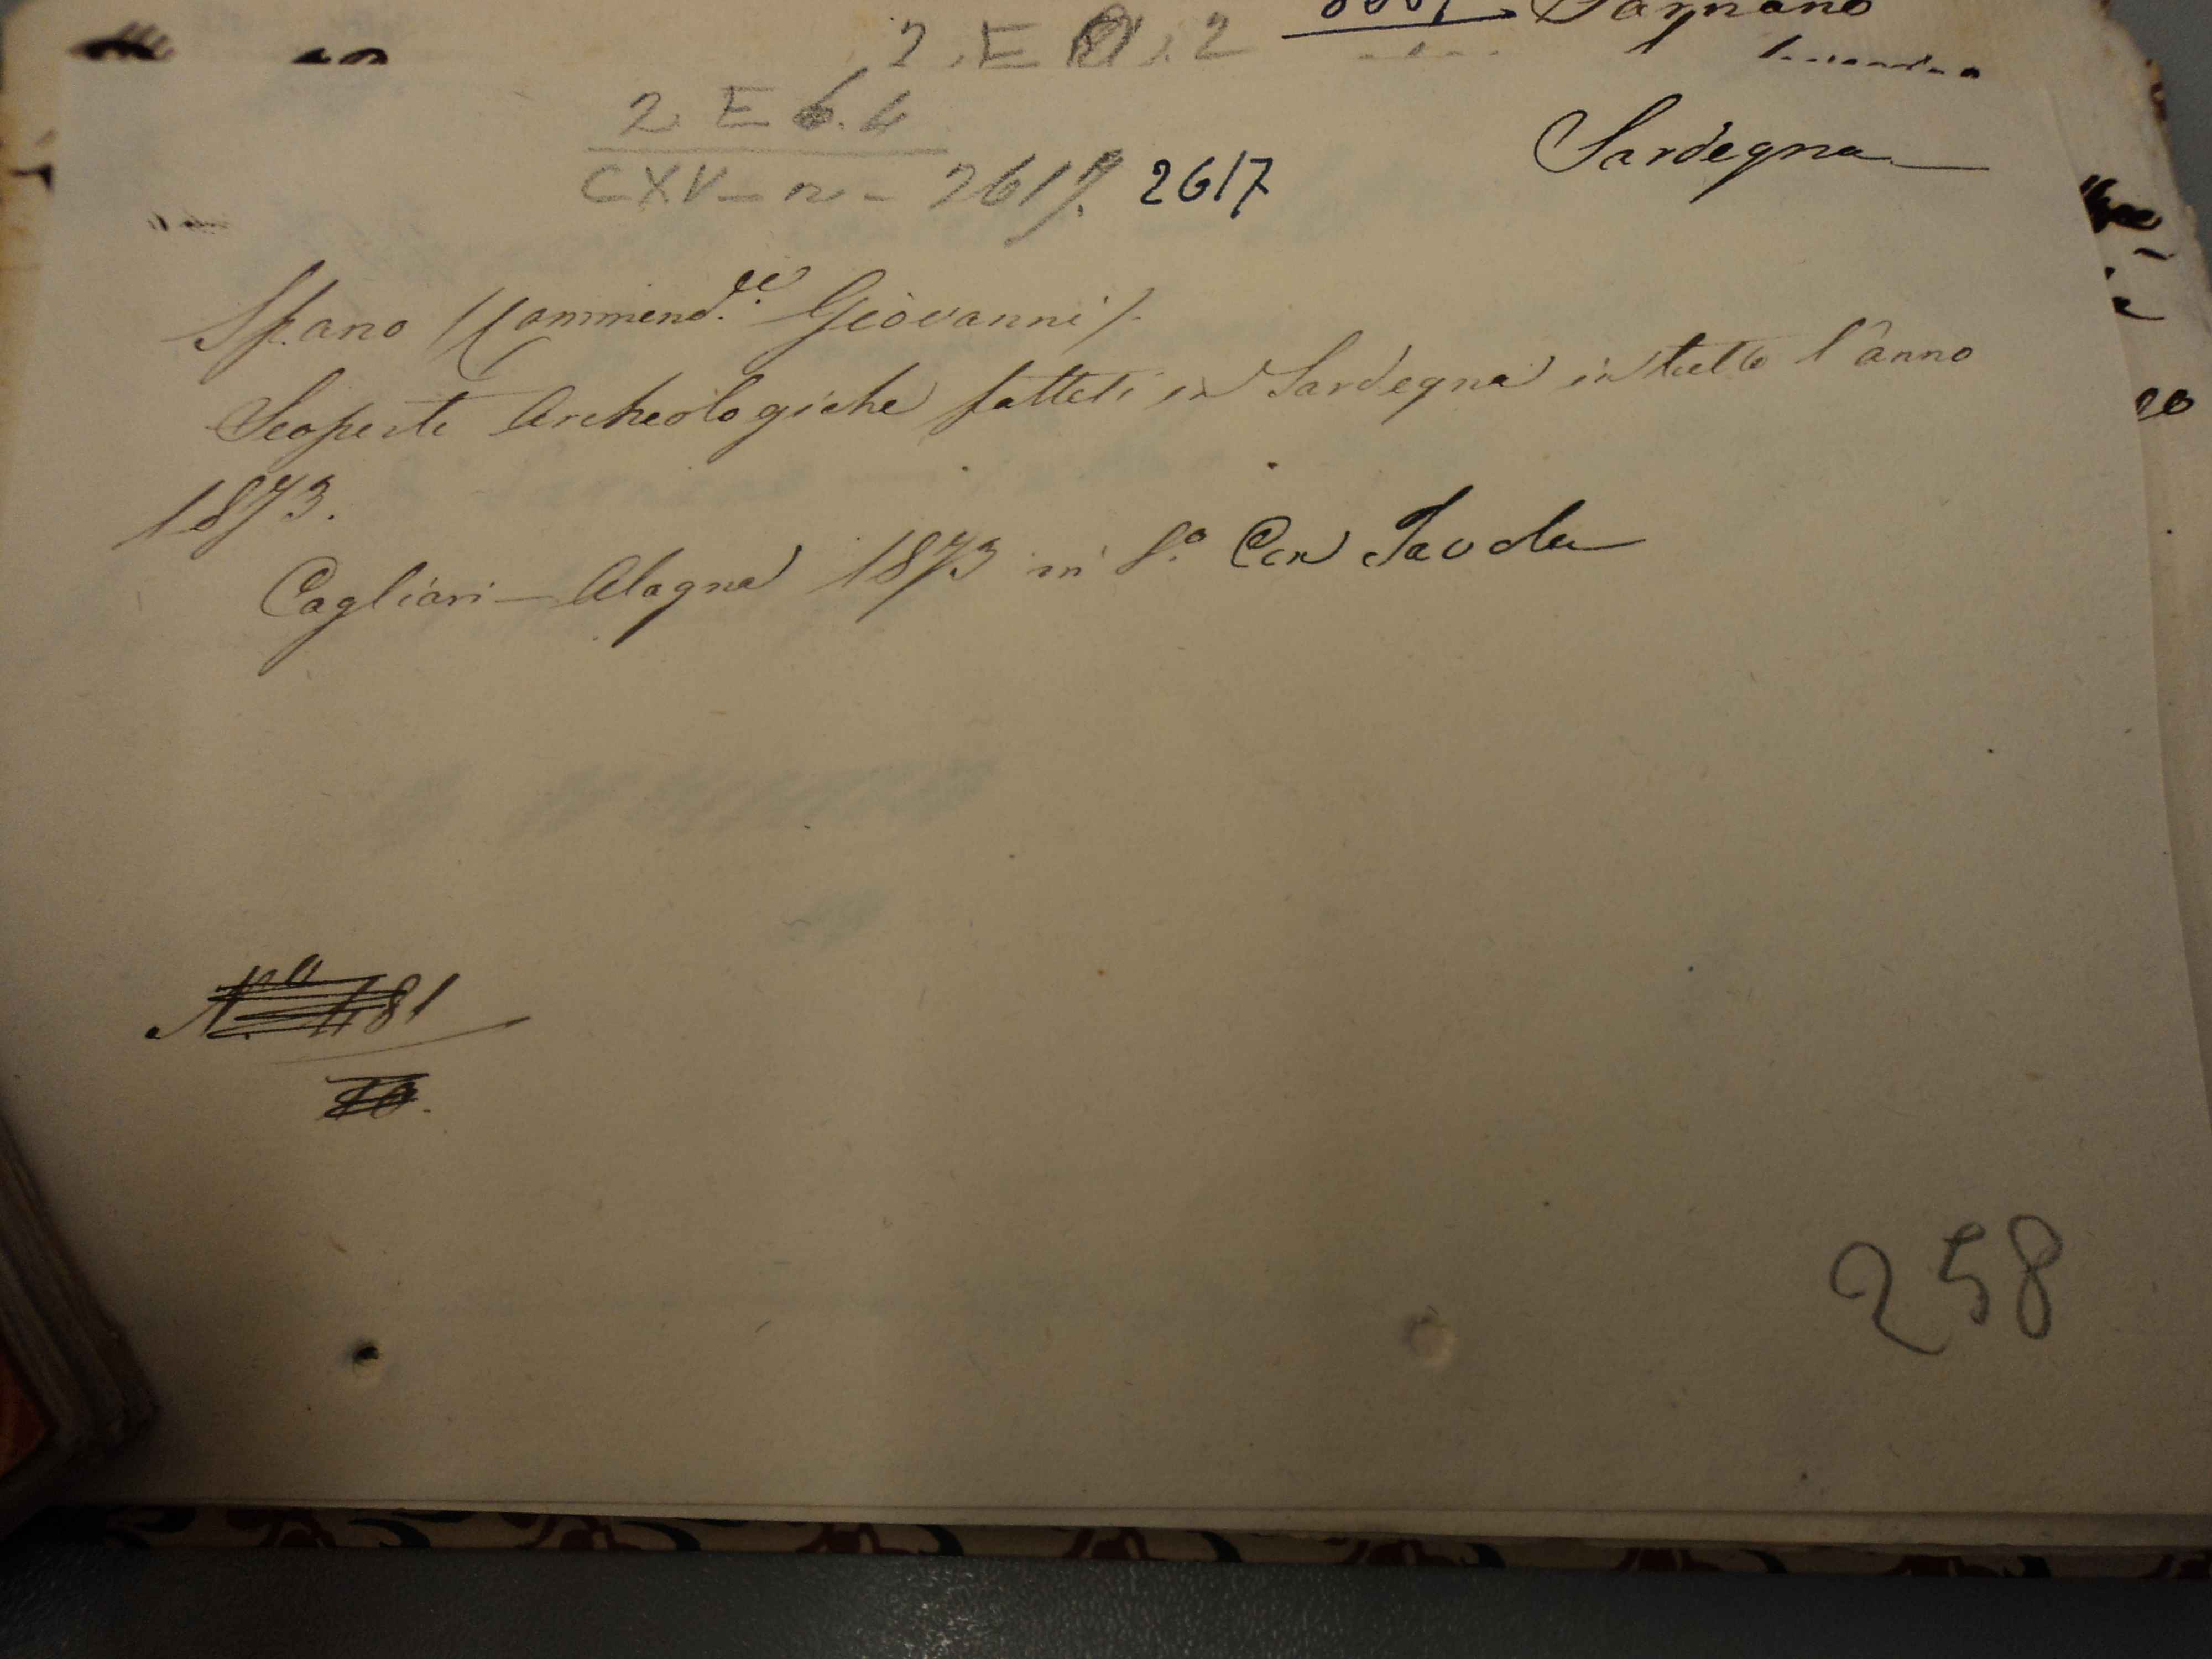 2. E 2
Sarnano
2. E 6. 4
Sardegna
CXV - n - 2617. 2617
Spano (Commend.e Giovanni).
Scoperte Archeologiche fattesi in Sardegna in tutto l'anno
1873.
Cagliari - Alagna 1873 in 8.o Con Tavola
N.o 481
258